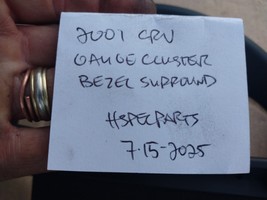 2001 CRV
GAUGE CLUSTER
BEZEL SURROUND
HSPECPARTS
7-15-2025